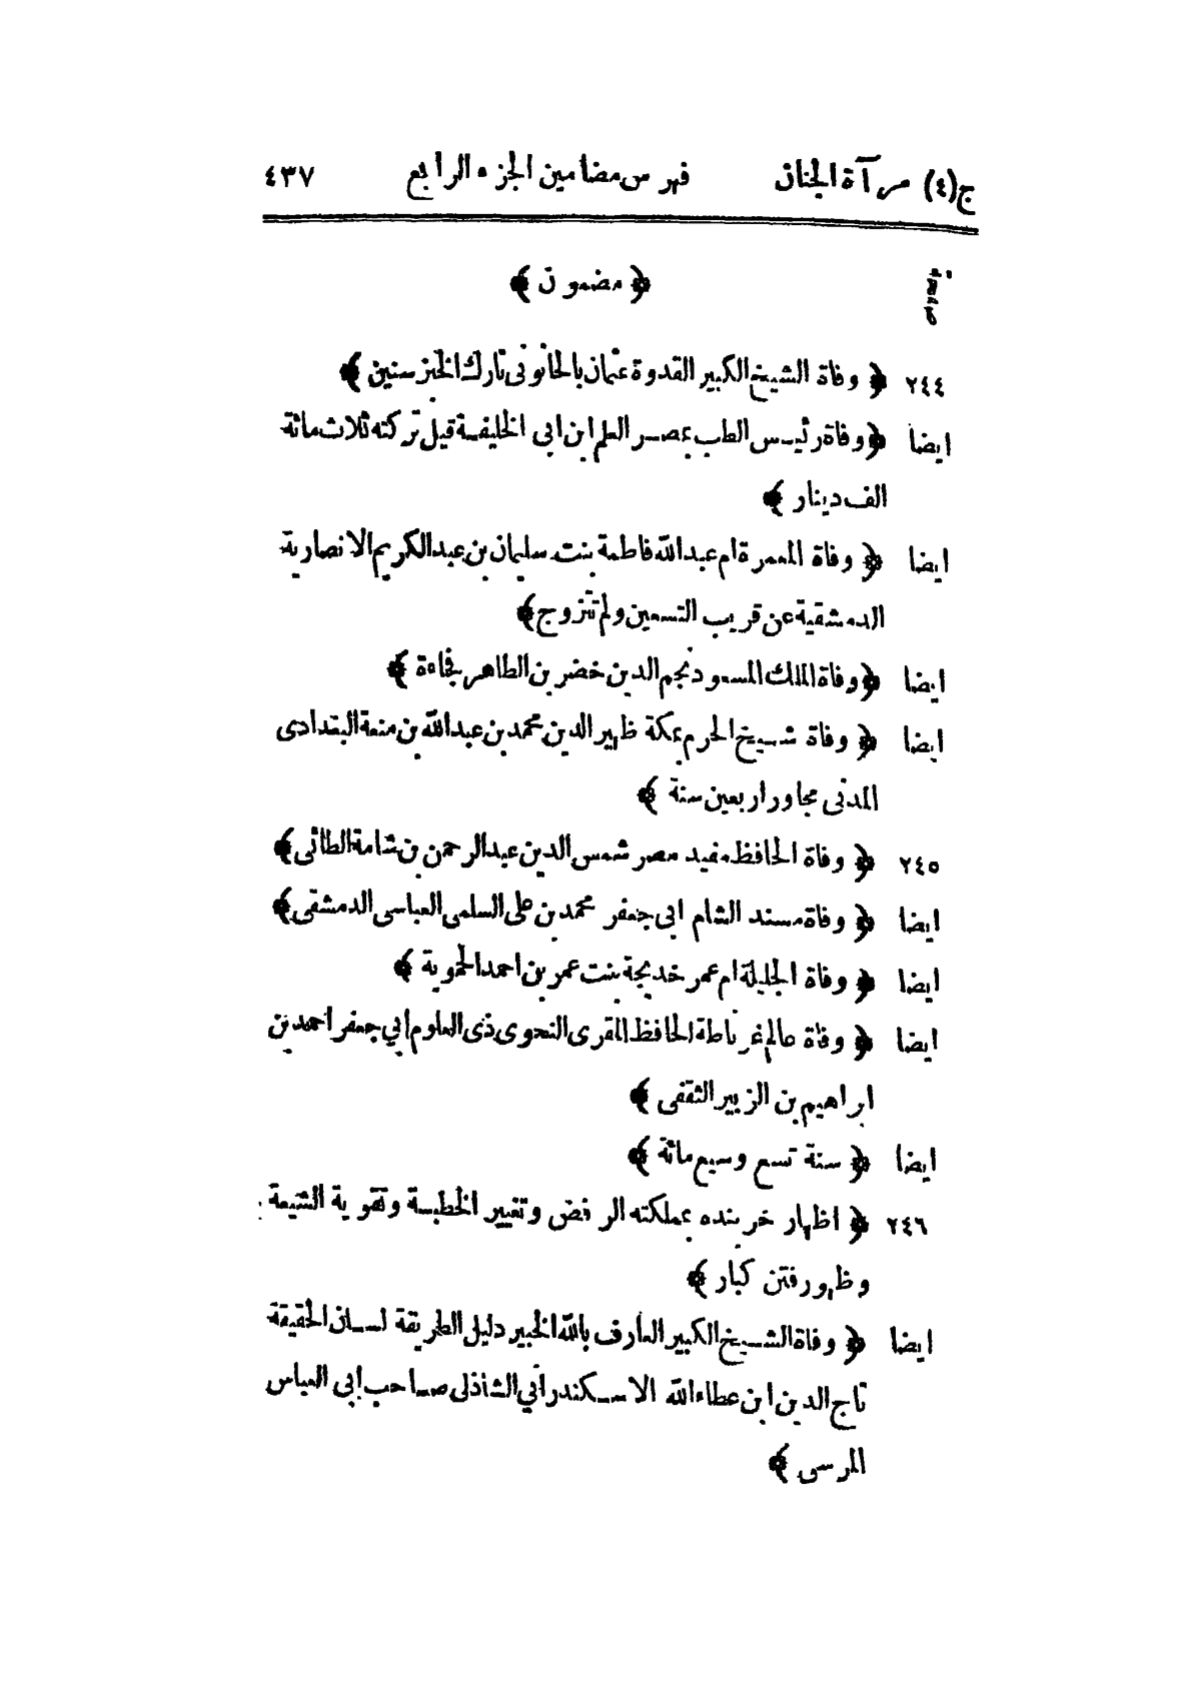 ج(٤) مرآة الجنان فهرس مضامين الجزء الرابع ٤٣٧
صفحة ﴿ مضمون ﴾
٢٤٤ ﴿ وفاة الشيخ الكبير القدوة عثمان بالحانوني تارك الخبز سنين ﴾
ايضا ﴿ وفاة رئيس الطب بمصر العلم ابن ابى الخليفة قيل تركته ثلاث مائة
الف دينار ﴾
ايضا ﴿ وفاة المعمرة ام عبدالله فاطمة بنت سليمان بن عبدالكريم الانصارية
الدمشقية عن قريب التسعين ولم تتزوج ﴾
ايضا ﴿ وفاة الملك المسعود نجم الدين خضر بن الطاهر فجاءة ﴾
ايضا ﴿ وفاة شيخ الحرم بمكة ظهير الدين محمد بن عبدالله بن منعة البغدادى
المدنى مجاور اربعين سنة ﴾
٢٤٥ ﴿ وفاة الحافظ مفيد مصر شمس الدين عبدالرحمن بن شامة الطائى ﴾
ايضا ﴿ وفاة مسند الشام ابى جعفر محمد بن على السلمى العباسى الدمشقى ﴾
ايضا ﴿ وفاة الجليلة ام عمر خديجة بنت عمر بن احمد الحموية ﴾
ايضا ﴿ وفاة عالم غرناطة الحافظ المقرى النحوى ذى العلوم ابي جعفر احمد بن
ابراهيم بن الزبير الثقفى ﴾
ايضا ﴿ سنة تسع وسبع مائة ﴾
٢٤٦ ﴿ اظهار خربنده بمملكته الرفض وتغيير الخطبة وتقوية الشيعة
وظهور فتن كبار ﴾
ايضا ﴿ وفاة الشيخ الكبير العارف بالله الخبير دليل الطريقة لسان الحقيقة
تاج الدين ابن عطاء الله الاسكندراني الشاذلى صاحب ابى العباس
المرسى ﴾